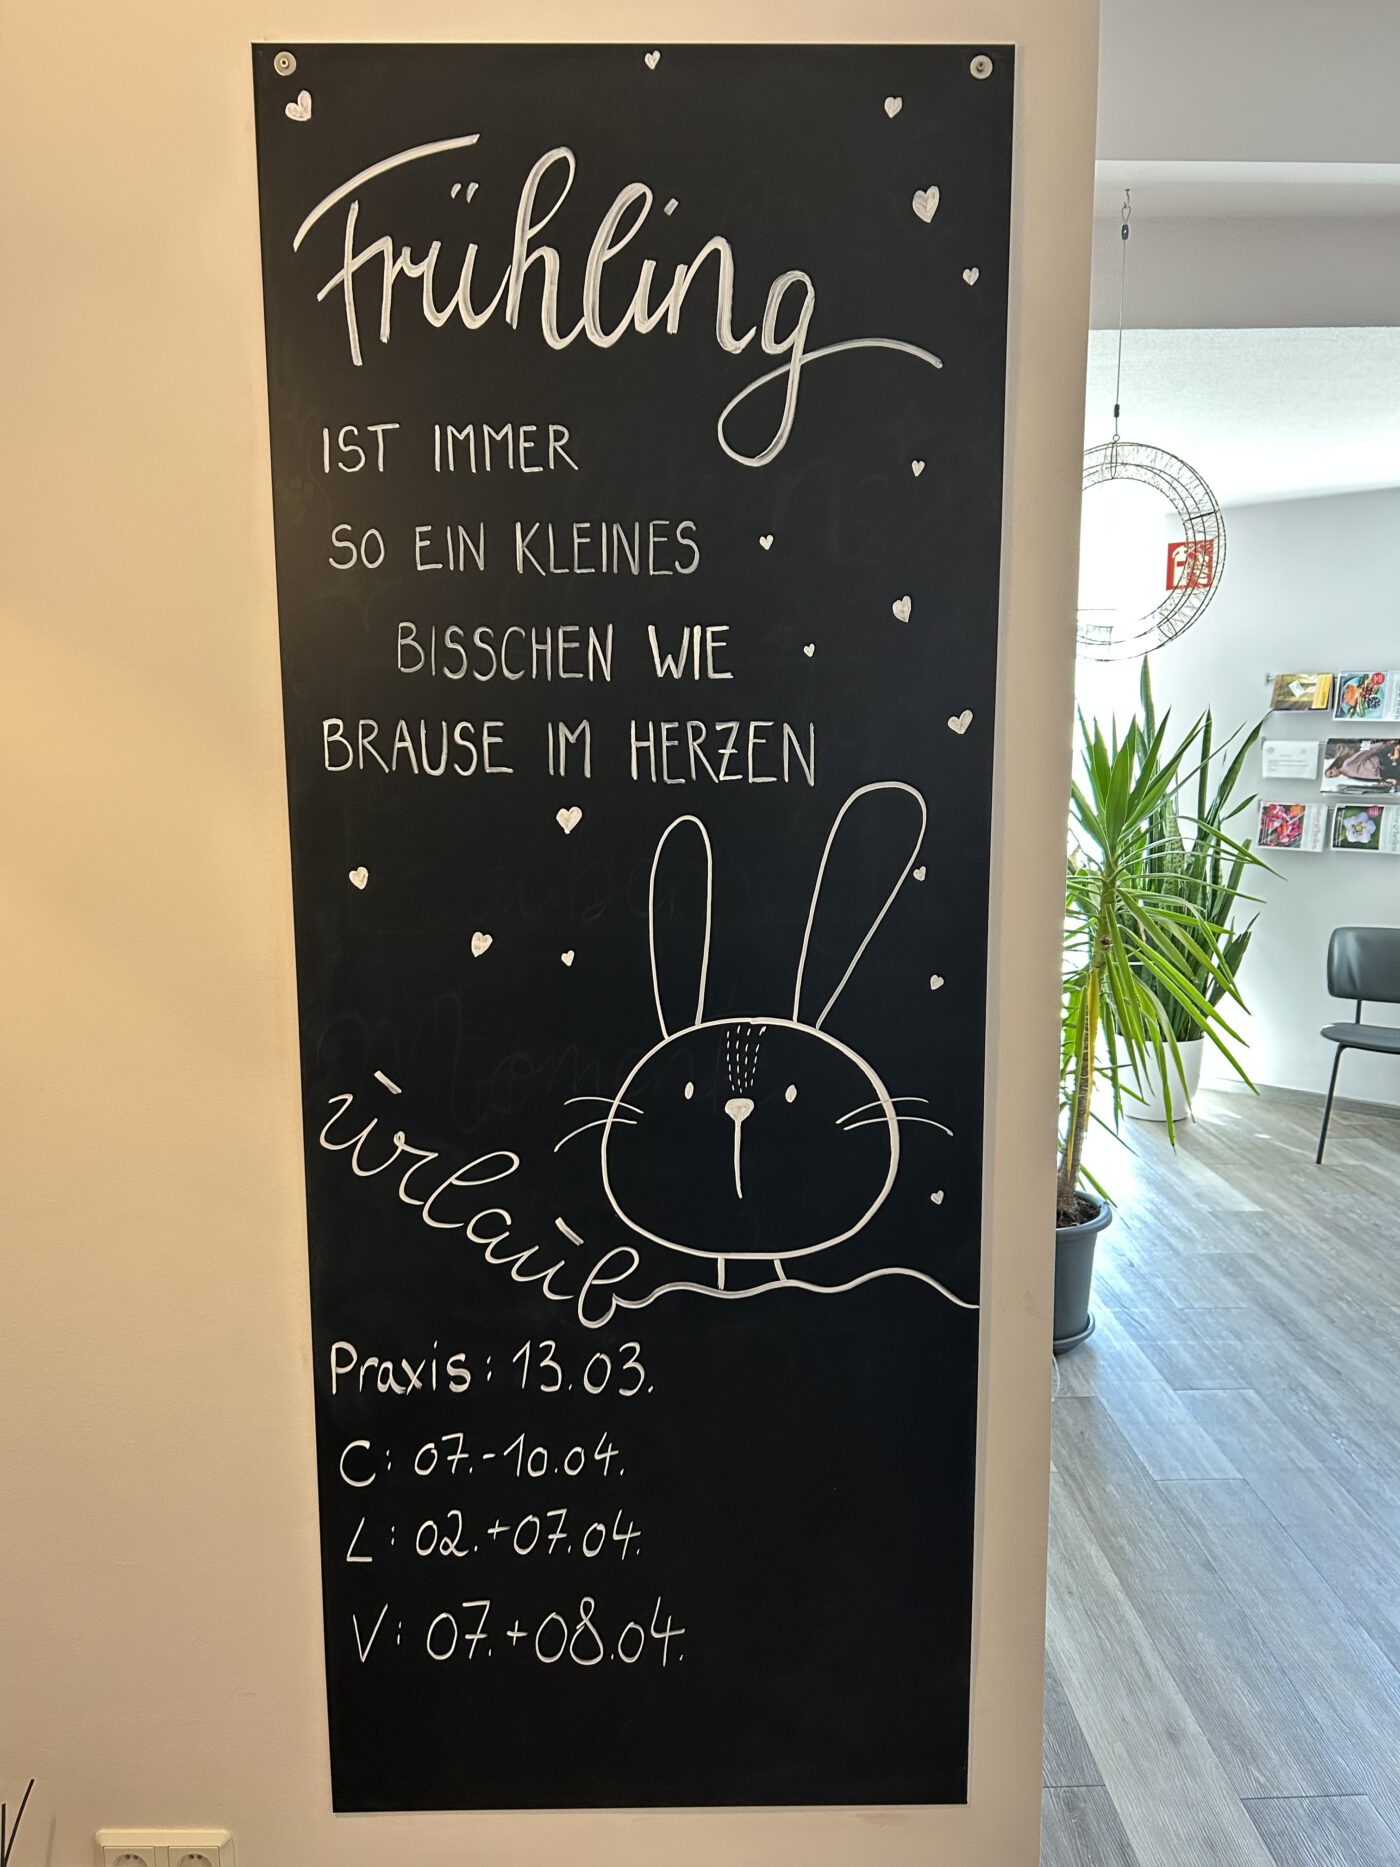 Frühling
IST IMMER
SO EIN KLEINES
BISSCHEN WIE
BRAUSE IM HERZEN
Urlaub
Praxis: 13.03.
C: 07.-10.04.
L: 02.+07.04.
V: 07.+08.04.